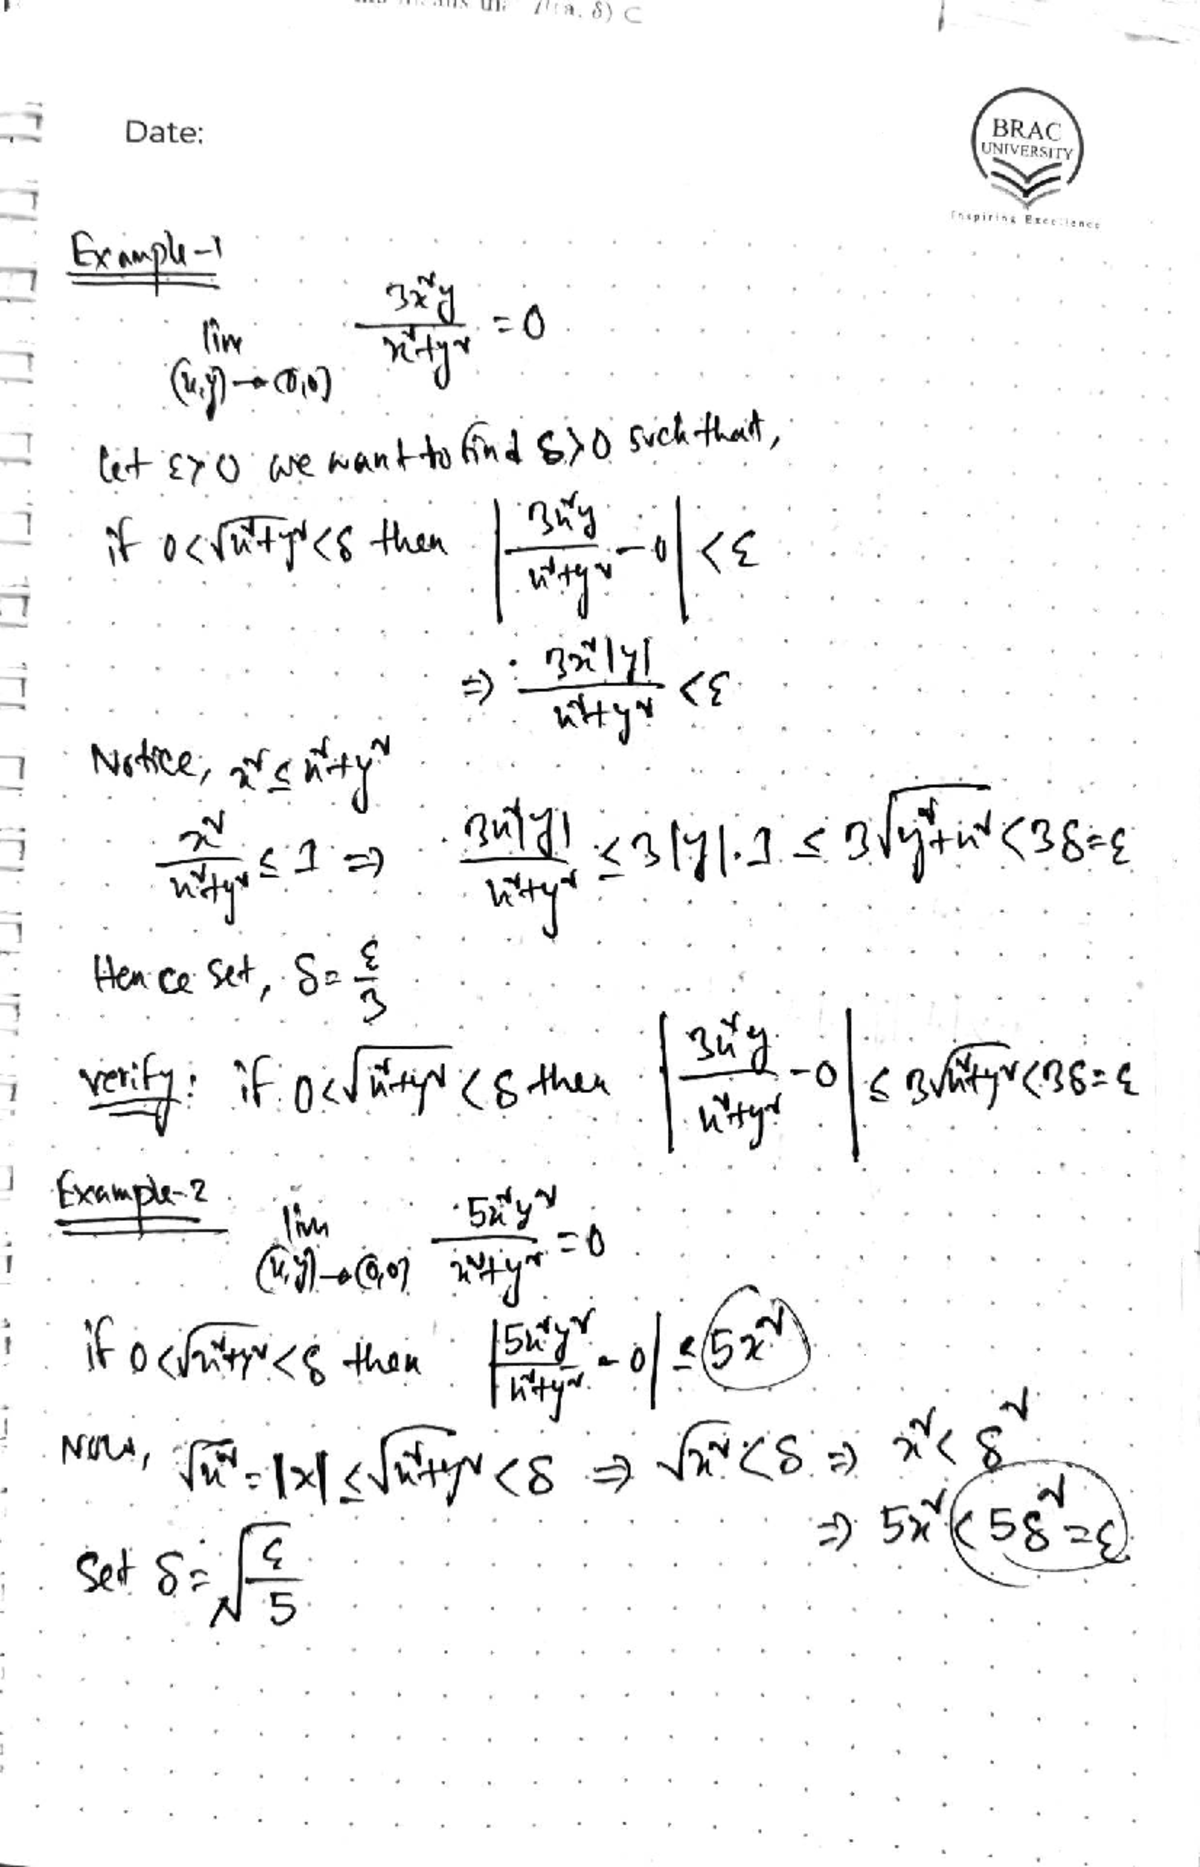 δ) ⊂
Date:
BRAC
UNIVERSITY
Inspiring Excellence
Example-1
lim (x,y)→(0,0) 3x²y / x²+y² = 0
let ε>0 we want to find δ>0 such that,
if 0<√x²+y²<δ then |3x²y / x²+y² - 0| < ε
⇒ 3x²|y| / x²+y² < ε
Notice, x² ≤ x²+y²
x² / x²+y² ≤ 1 ⇒ 3x²|y| / x²+y² ≤ 3|y|.1 ≤ 3√y²+x² < 3δ = ε
Hence set, δ = ε/3
verify: if 0<√x²+y² < δ then |3x²y / x²+y² - 0| ≤ 3√x²+y² < 3δ = ε
Example-2
lim (x,y)→(0,0) 5x²y² / x²+y² = 0
if 0<√x²+y²<δ then |5x²y² / x²+y² - 0| ≤ 5x²
Now, √x² = |x| ≤ √x²+y² < δ ⇒ √x² < δ ⇒ x² < δ²
⇒ 5x² < 5δ² = ε
Set δ = √ε/5